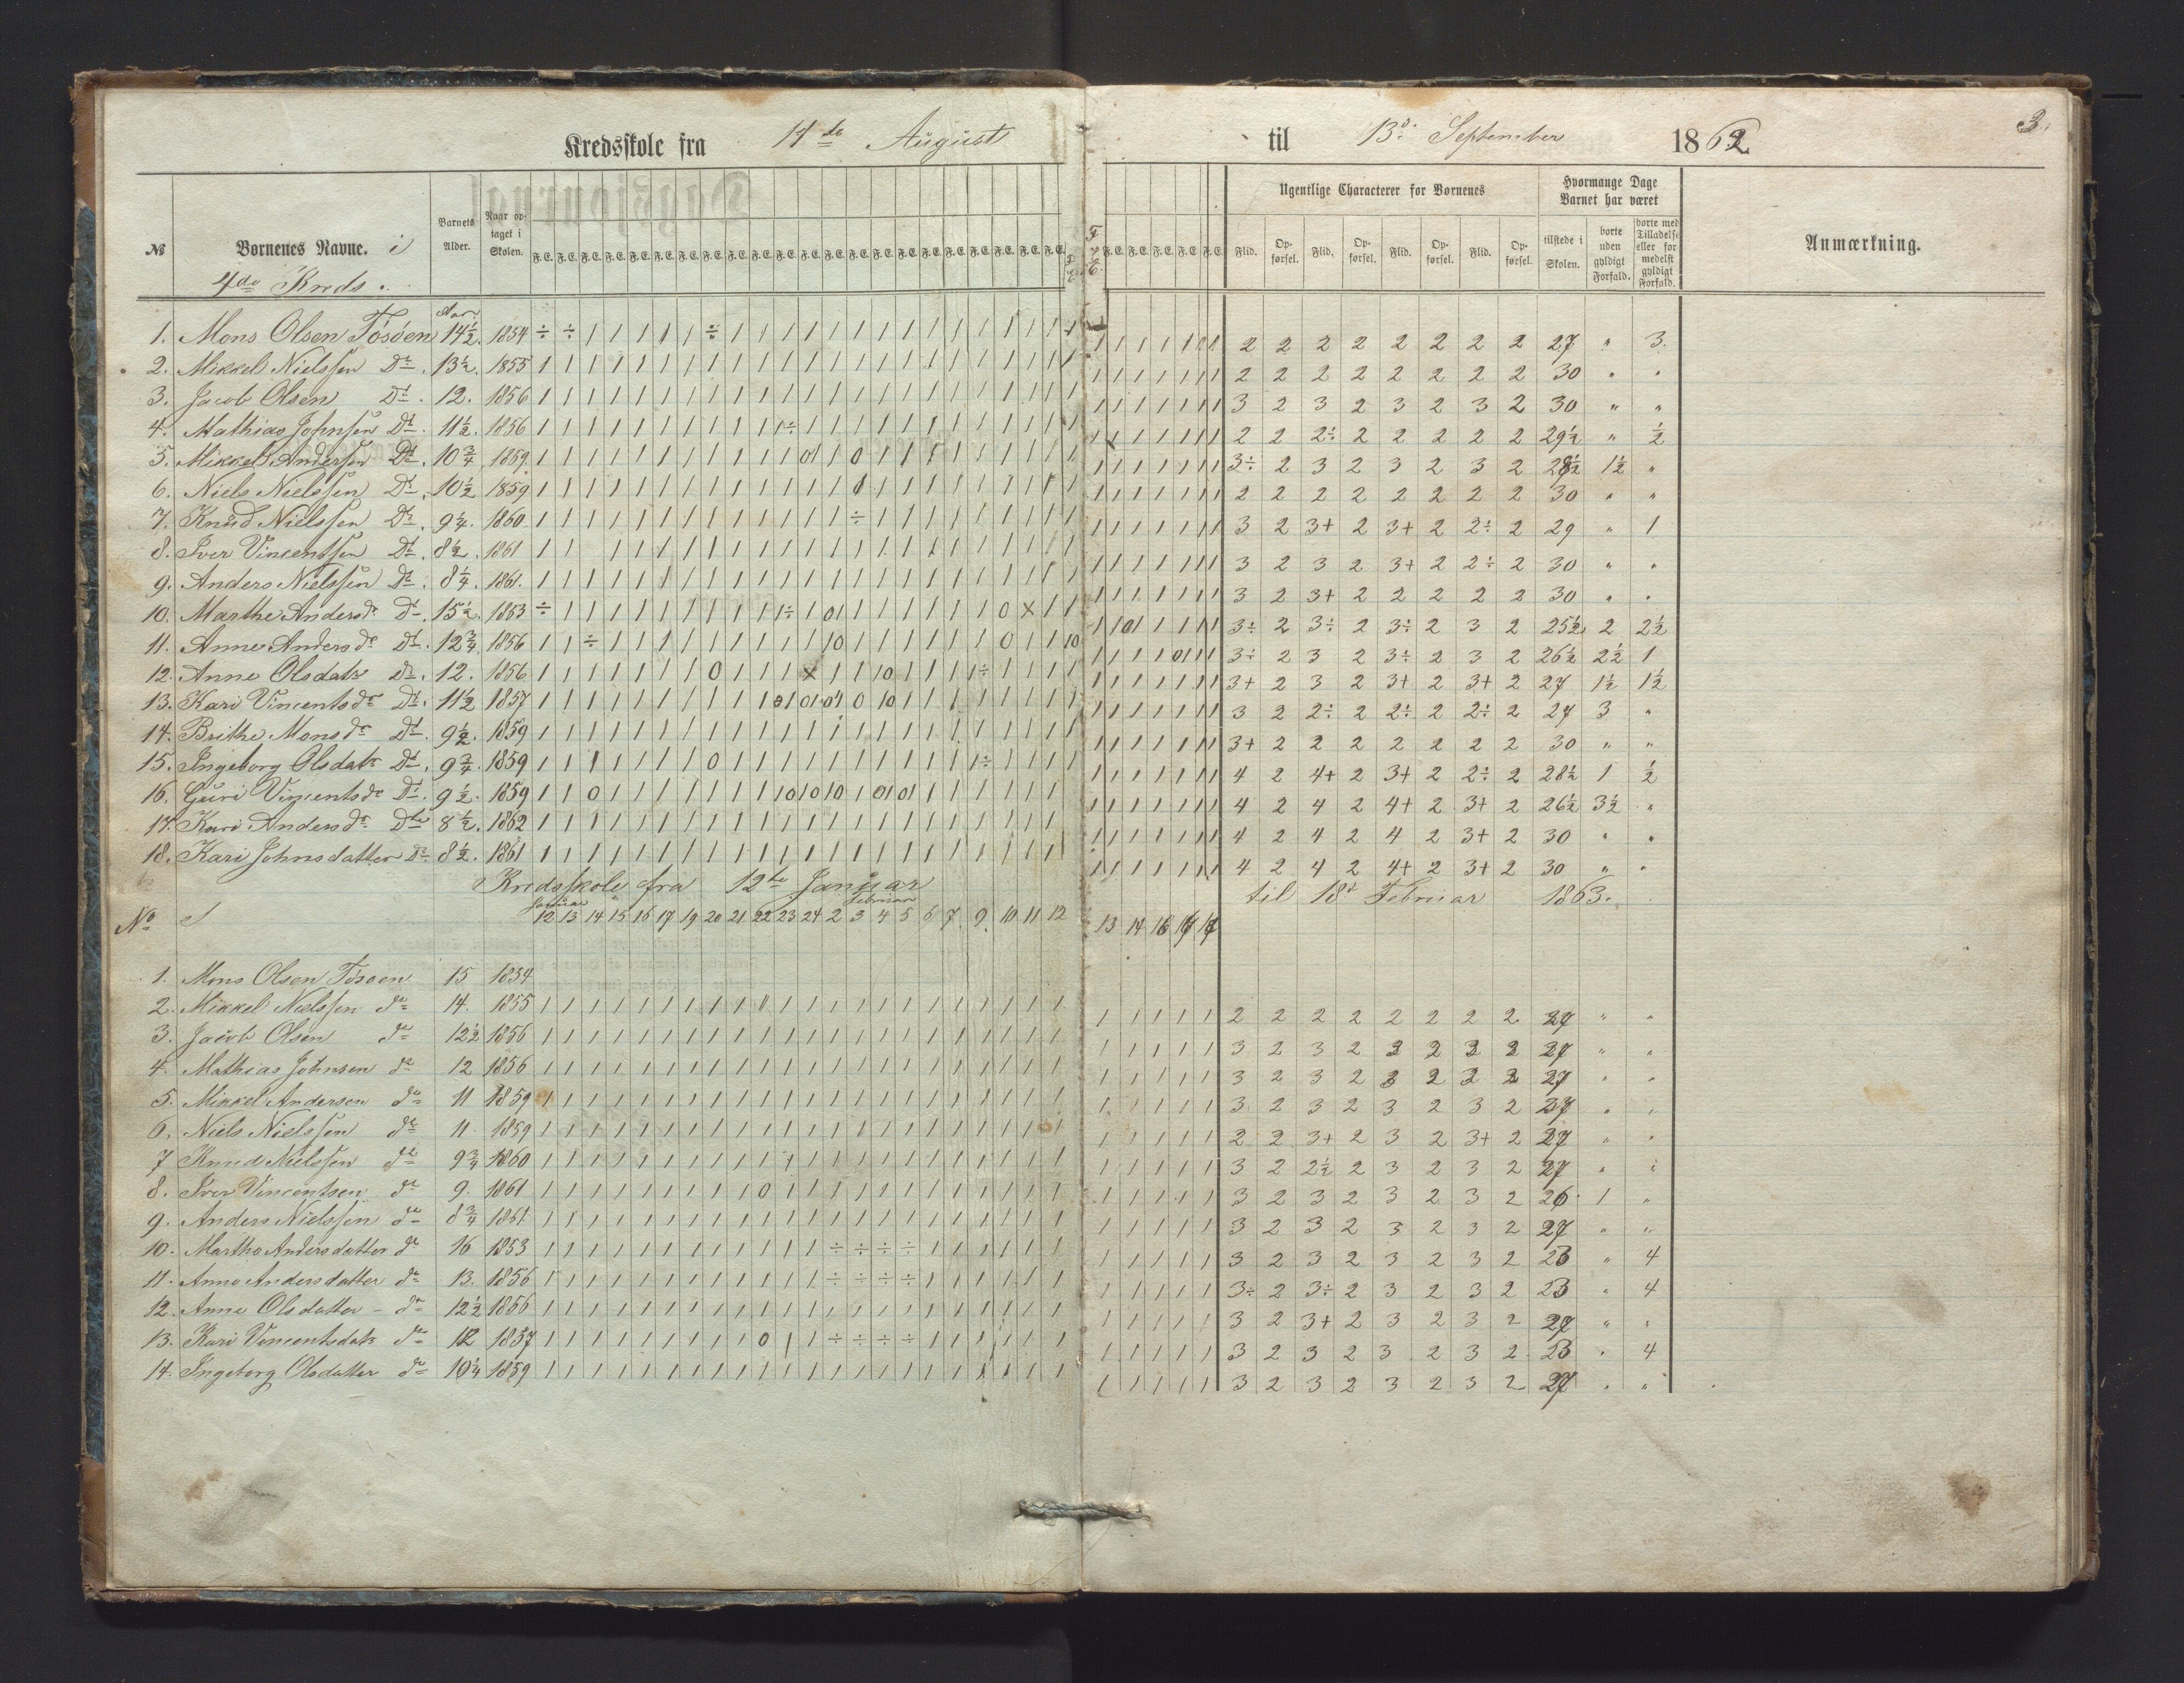 3.
Kredsskole fra 11te August til 13de September 1862
№ Børnenes Navne. i Barnets Alder. Naar optaget i Skolen. F. E. F. E. F. E. F. E. Ugentlige Characterer for Børnenes Hvormange Dage Barnet har været Anmærkning.
Flid. Opførsel. Flid. Opførsel. Flid. Opførsel. Flid. Opførsel. tilstede i Skolen. borte uden gyldigt Forfald. borte med Tilladelse eller formedelst gyldigt Forfald.
4de Kreds.
Aar
1. Mons Olsen Tösöen 14½. 1854 2 2 2 2 2 2 2 2 27 " 3.
2. Mikkel Nielssen Do. 13½. 1855 2 2 2 2 2 2 2 2 30 " "
3. Jacob Olsen Do. 12. 1856 3 2 3 2 3 2 3 2 30 " "
4. Mathias Johnsen Do. 11½. 1856 2 2 2÷ 2 2 2 2 2 29½ " ½
5. Mikkel Andersen Do. 10¾ 1859. 3÷ 2 3 2 3 2 3 2 28½ 1½ "
6. Niels Nielssen Do. 10½ 1859 2 2 2 2 2 2 2 2 30 " "
7. Knud Nielssen Do. 9¼. 1860 3 2 3+ 2 3+ 2 2÷ 2 29 " 1
8. Iver Vincentsen Do. 8½. 1861 3 2 3 2 3+ 2 2÷ 2 30 " "
9. Anders Nielssen Do. 8¼. 1861. 3 2 3+ 2 2 2 2 2 30 " "
10. Marthe Andersdr Do. 15½. 1853 3÷ 2 3÷ 2 3÷ 2 3 2 25½ 2 2½
11. Anne Andersdr Do. 12¾ 1856 3÷ 2 3 2 3÷ 2 3 2 26½ 2½ 1
12. Anne Olsdatr Do. 12. 1856 3+ 2 3 2 3+ 2 3+ 2 27 1½ 1½
13. Kari Vincentsdr Do. 11½ 1857 3 2 2÷ 2 2÷ 2 2÷ 2 27 3 "
14. Brithe Monsdr Do. 9½. 1859 3+ 2 2 2 2 2 2 2 30 " "
15. Ingeborg Olsdatr Do. 9¾. 1859 4 2 4+ 2 3+ 2 2÷ 2 28½ 1 ½
16. Guri Vincentsdr Do. 9½. 1859 4 2 4 2 4+ 2 3+ 2 26½ 3½ "
17. Kari Andersdr Do 8½. 1862 4 2 4 2 4 2 3+ 2 30 " "
18. Kari Johnsdatter Do 8½. 1861 4 2 4 2 4+ 2 3+ 2 30 " "
Kredsskole fra 12te Januar til 18de Februar 1863.
Januar Februar
No 12 13 14 15 16 17 19 20 21 22 23 24 2 3 4 5 6 7 9 10 11 12 13 14 16 17
1. Mons Olsen Tösöen 15 1854
2. Mikkel Nielssen do 14. 1855 2 2 2 2 2 2 2 2 27 " "
3. Jacob Olsen do 12½ 1856 3 2 3 2 3 2 3 2 27 " "
4. Mathias Johnsen do 12 1856 3 2 3 2 3 2 2 2 27 " "
5. Mikkel Andersen do 11 1859 3 2 3 2 3 2 3 2 27 " "
6. Niels Nielssen do 11 1859 2 2 3+ 2 3 2 3+ 2 27 " "
7 Knud Nielssen do 9¾ 1860 3 2 2½ 2 3 2 3 2 27 " "
8. Iver Vincentsen do 9. 1861 3 2 3 2 3 2 3 2 26 1 "
9. Anders Nielssen do 8¾ 1861. 3 2 3 2 3 2 3 2 27 " "
10. Martha Andersdatter do 16 1853 3 2 3 2 3 2 3 2 23 " 4
11. Anna Andersdatter do 13. 1856 3÷ 2 3÷ 2 3 2 3 2 23 " 4
12. Anne Olsdatter do 12½ 1856 3 2 3+ 2 3 2 3 2 27 " "
13. Kari Vincentsdatr do 12 1857 3 2 3 2 3 2 3 2 23 " 4
14. Ingeborg Olsdatter do 10¼ 1859 3 2 3 2 3 2 3 2 27 " "